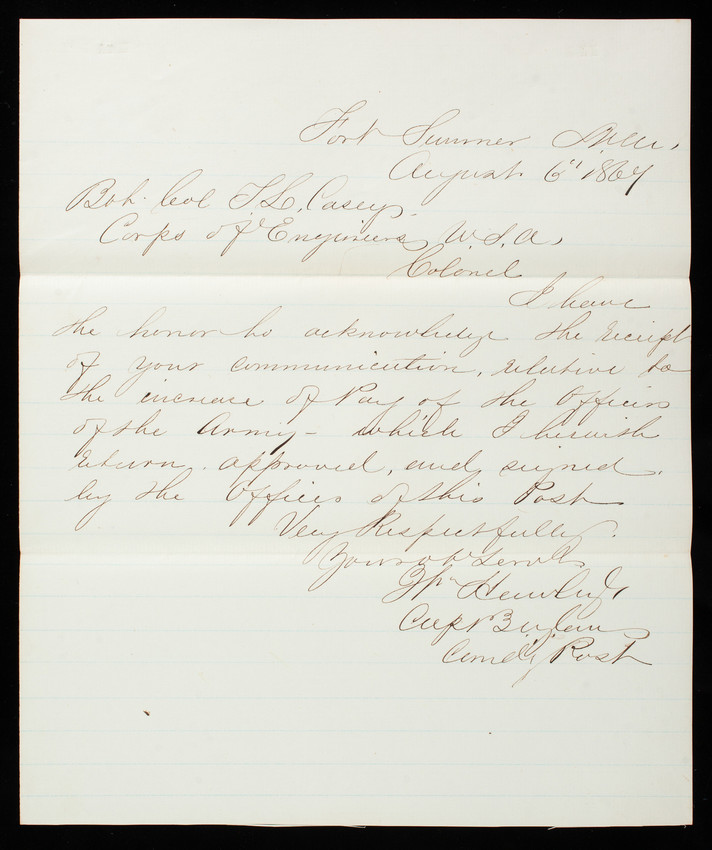 Fort Sumner
August 6" 1867
Bvt. Col T. L. Casey.
Corps of Engineers, U. S. A,
Colonel
I have
the honor to acknowledge the receipt
of your communication, relative to
the increase of Pay of the Officers
of the Army - which I herewith
return. approved, and signed.
by the Officers of this Post
Very Respectfully.
Your obt Servt
Wm
Capt
Comd'g Post